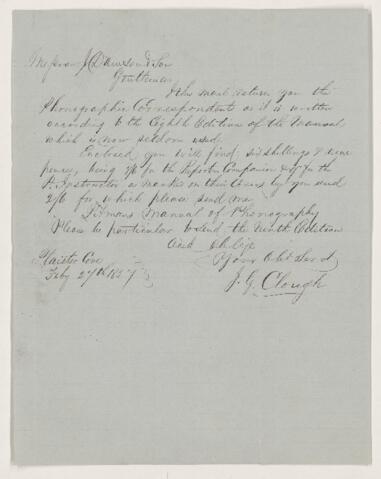 Messrs J Dawson & Son
Gentlemen
I this mail return you the
Phonographic Correspondents as it is written
according to the Eighth Edition of the Manual
which is now seldom used.
Enclosed you will find six shillings & nine
pence, being 3/6 for the Reporters Companion & 9d for the
P. Instructor as marked on their Covers by you and
2/6 for which please send me
Pitmans Manual of Phonography
Please be particular to send the Ninth Edition
and oblige
Your Obt Servt
J. G. Clough
Plaister Cove
Feby 27th 1857